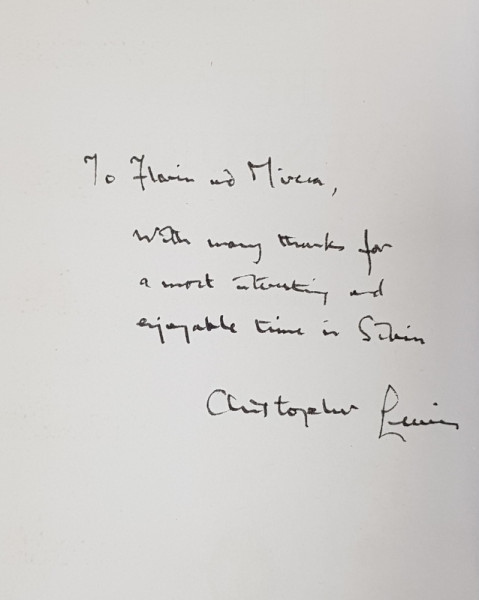 To Florin and Mircea,
With many thanks for
a most interesting and
enjoyable time in Sibiu
Christopher